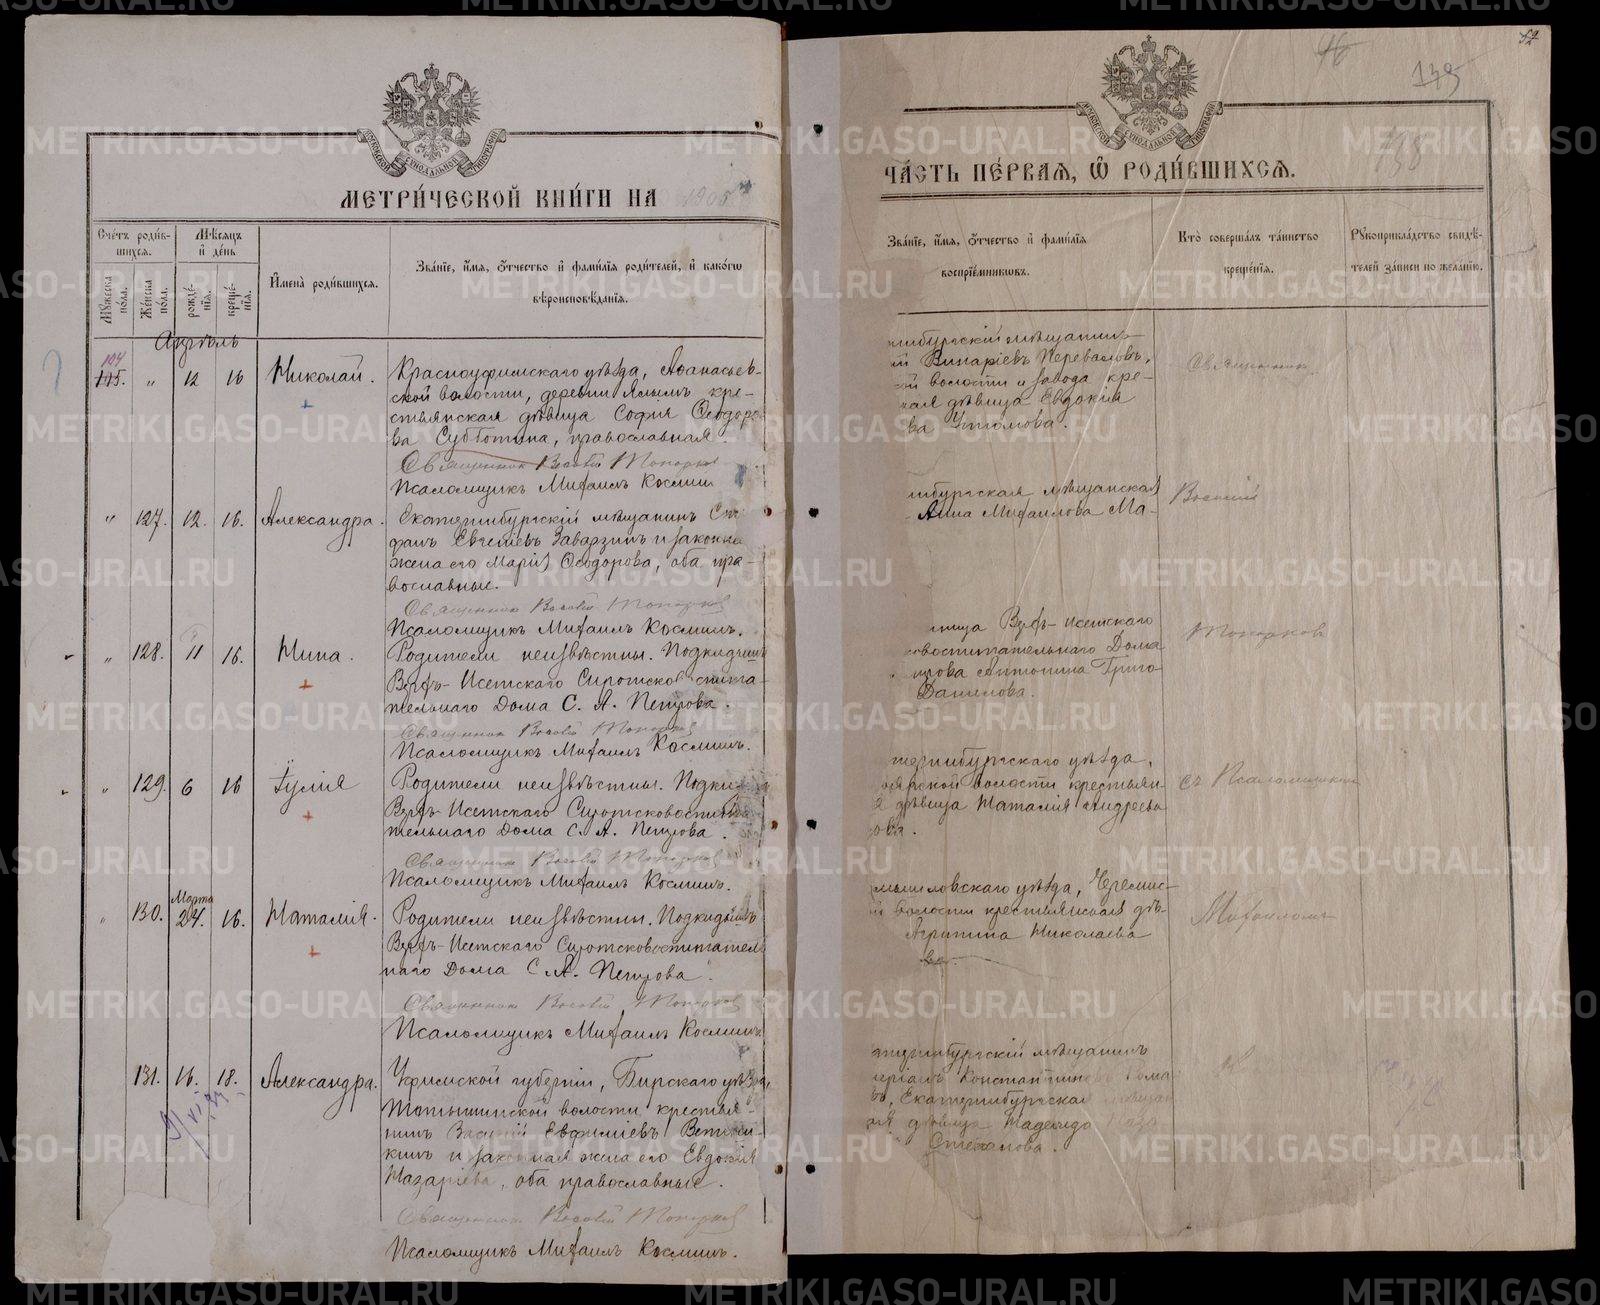 МЕТРИ́ЧЕСКОЙ КНИ́ГИ НА 1905
Сче́тъ роди́в-
шихся.
Мѣ́сяцъ
и҆ де́нь
Му́жеска
по́ла.
Же́нска
по́ла.
рожде́-
нїя.
креще́-
нїя.
И҆мена̀ роди́вшихся.
Зва́нїе, и҆́мя, ѻ҆́тчество и҆ фами́лїя роди́телей, и҆ како́гѡ
вѣроисповѣ́данїя.
Апрѣль
104
105. " 12 16 Николай. Красноуфимскаго уѣзда, Афанасьев-
ской волости, деревни Ялымъ кре-
стьянская дѣвица София Ѳеодоро
ва Субботина, православная.
Священник Василій Топорков
Псаломщикъ Михаилъ Космин
" 127. 12. 16. Александра. Екатеринбургскій мѣщанинъ Сте
фанъ Евгеніевъ Заварзинъ и законна
жена его Марія Ѳеодорова, оба пра-
вославные.
Священник Василій Топорков
Псаломщикъ Михаилъ Косминъ.
" 128. 11 16. Нина. Родители неизвѣстны. Подкидышъ
Верх-Исетскаго Сиротсковоспита-
тельнаго Дома С. А. Петрова.
Священник Василій Топорков
Псаломщикъ Михаилъ Косминъ.
" 129. 6 16 Іулія Родители неизвѣстны. Подки
Верх-Исетскаго Сиротсковоспита
тельнаго Дома С. А. Петрова.
Священник Василій Топорков
Псаломщикъ Михаилъ Косминъ.
" 130. Марта 24. 16. Наталія. Родители неизвѣстны. Подкидышъ
Верх-Исетскаго Сиротсковоспитател
наго Дома С. А. Петрова.
Священник Василій Топорков
Псаломщикъ Михаилъ Косминъ
131. 16. 18. Александра. Уфимской губерніи, Бирскаго уѣзда,
волости, крестья-
нинъ Василій Евфиміевъ
кинъ и законная жена его Евдокія
Назаріева, оба православные.
Священник Василій Топорков
Псаломщикъ Михаилъ Косминъ.
96
139
138
ЧА́СТЬ ПЕ́РВАЯ, Ѡ҆ РОДИ́ВШИХСЯ.
Зва́нїе, и҆́мя, ѻ҆́тчество и҆ фами́лїя
воспрїе́мниковъ.
Кто̀ соверша́лъ та́инство
креще́нїя.
Рꙋкоприкла́дство свидѣ́-
телей за́писи по жела́нїю.
инбургскій мѣщанин
й Винаріевъ Переваловъ,
ой волости и завода кре-
кая дѣвица Евдокія
ва Утюмова.
Священник
инбургская мѣщанская
Анна Михаилова Ма-
Василій
ица Верх-Исетскаго
овоспитательнаго Дома
трова Антонина Григо
Данилова.
Топорков
теринбургскаго уѣзда,
оярской волости крестьян
я дѣвица Наталія Андреева
ова.
съ Псаломщиком
мышловскаго уѣзда, Черемис-
й волости крестьянская дѣ-
Агрипина Николаева
ва.
Михаилом
атеринбургскій мѣщанинъ
еріанъ Константинов Рома
въ, Екатеринбургская мѣщан
кая дѣвица Надежда
Стеханова.
METRIKI.GASO-URAL.RU